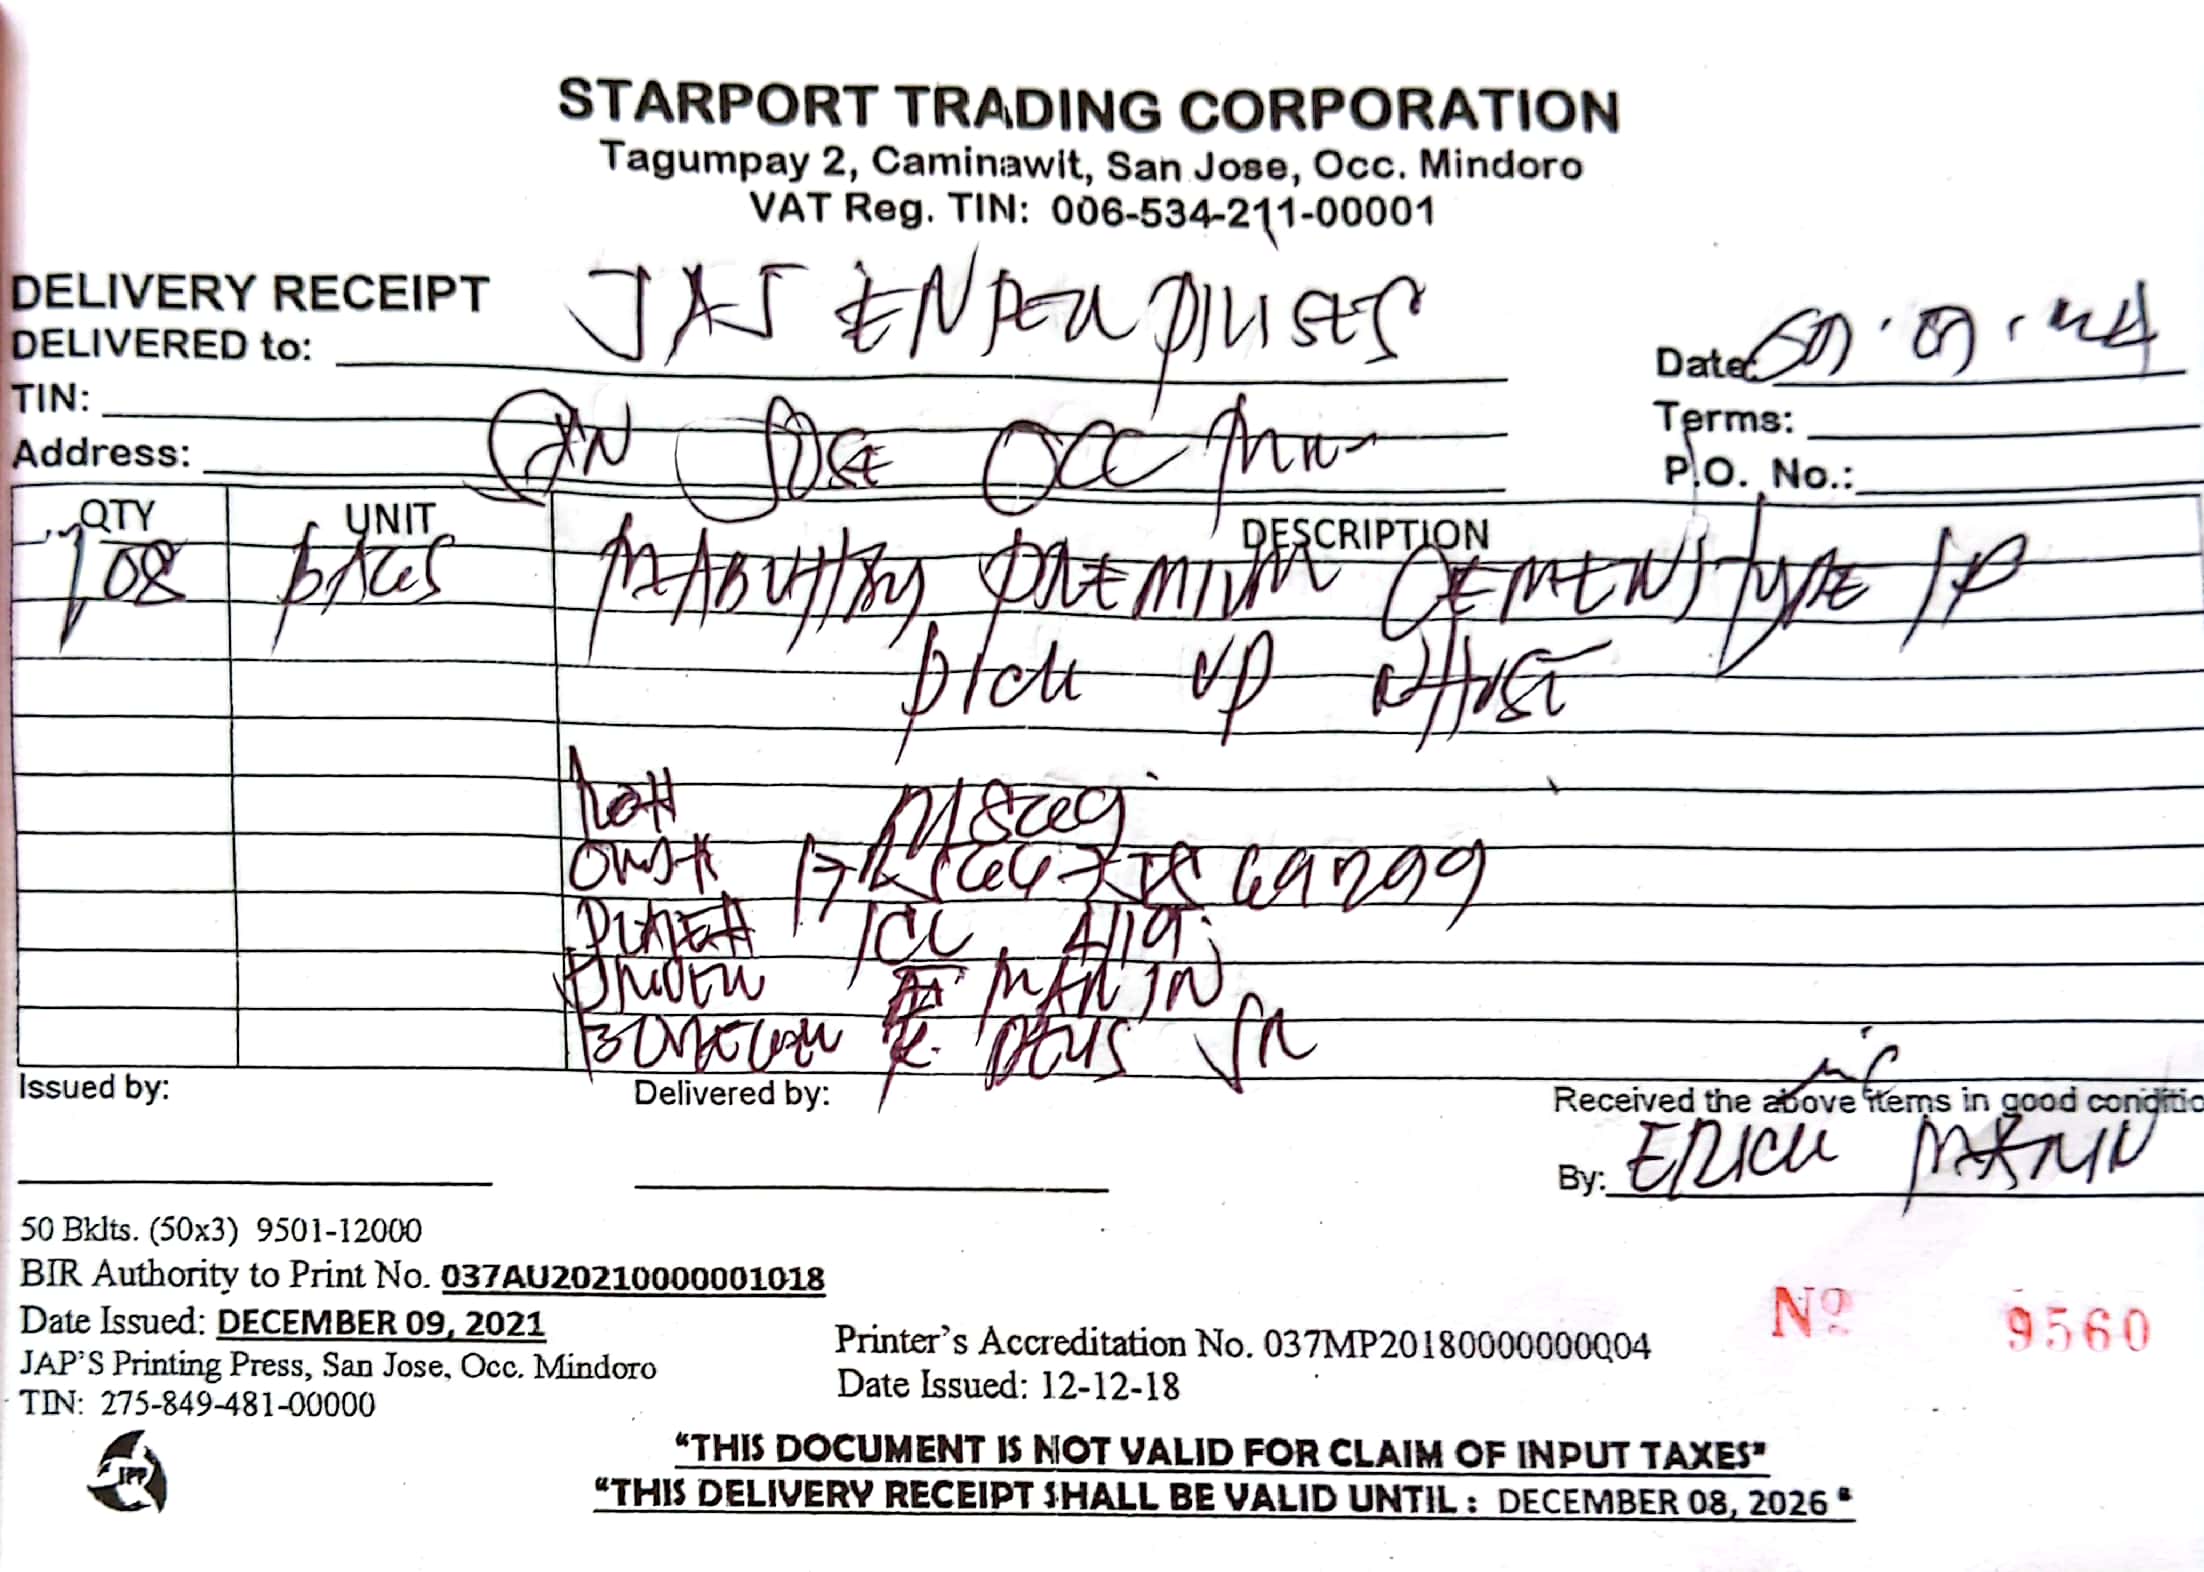 STARPORT TRADING CORPORATION
Tagumpay 2, Caminawit, San Jose, Occ. Mindoro
VAT Reg. TIN: 006-534-211-00001
DELIVERY RECEIPT
DELIVERED to: JAJ ENTERPRISES
Date:
TIN:
Terms:
Address: SAN JOSE OCC MIN
P.O. No.:
QTY UNIT DESCRIPTION
108 BAGS MABUHAY PREMIUM CEMENT TYPE 1P
PICK UP WHSE
ERICK MARIN
Issued by:
Delivered by:
Received the above items in good conditio
By:
50 Bklts. (50x3) 9501-12000
BIR Authority to Print No. 037AU20210000001018
Date Issued: DECEMBER 09, 2021
JAP'S Printing Press, San Jose, Occ. Mindoro
TIN: 275-849-481-00000
Printer's Accreditation No. 037MP20180000000004
Date Issued: 12-12-18
Nº 9560
JPP
"THIS DOCUMENT IS NOT VALID FOR CLAIM OF INPUT TAXES"
"THIS DELIVERY RECEIPT SHALL BE VALID UNTIL : DECEMBER 08, 2026"